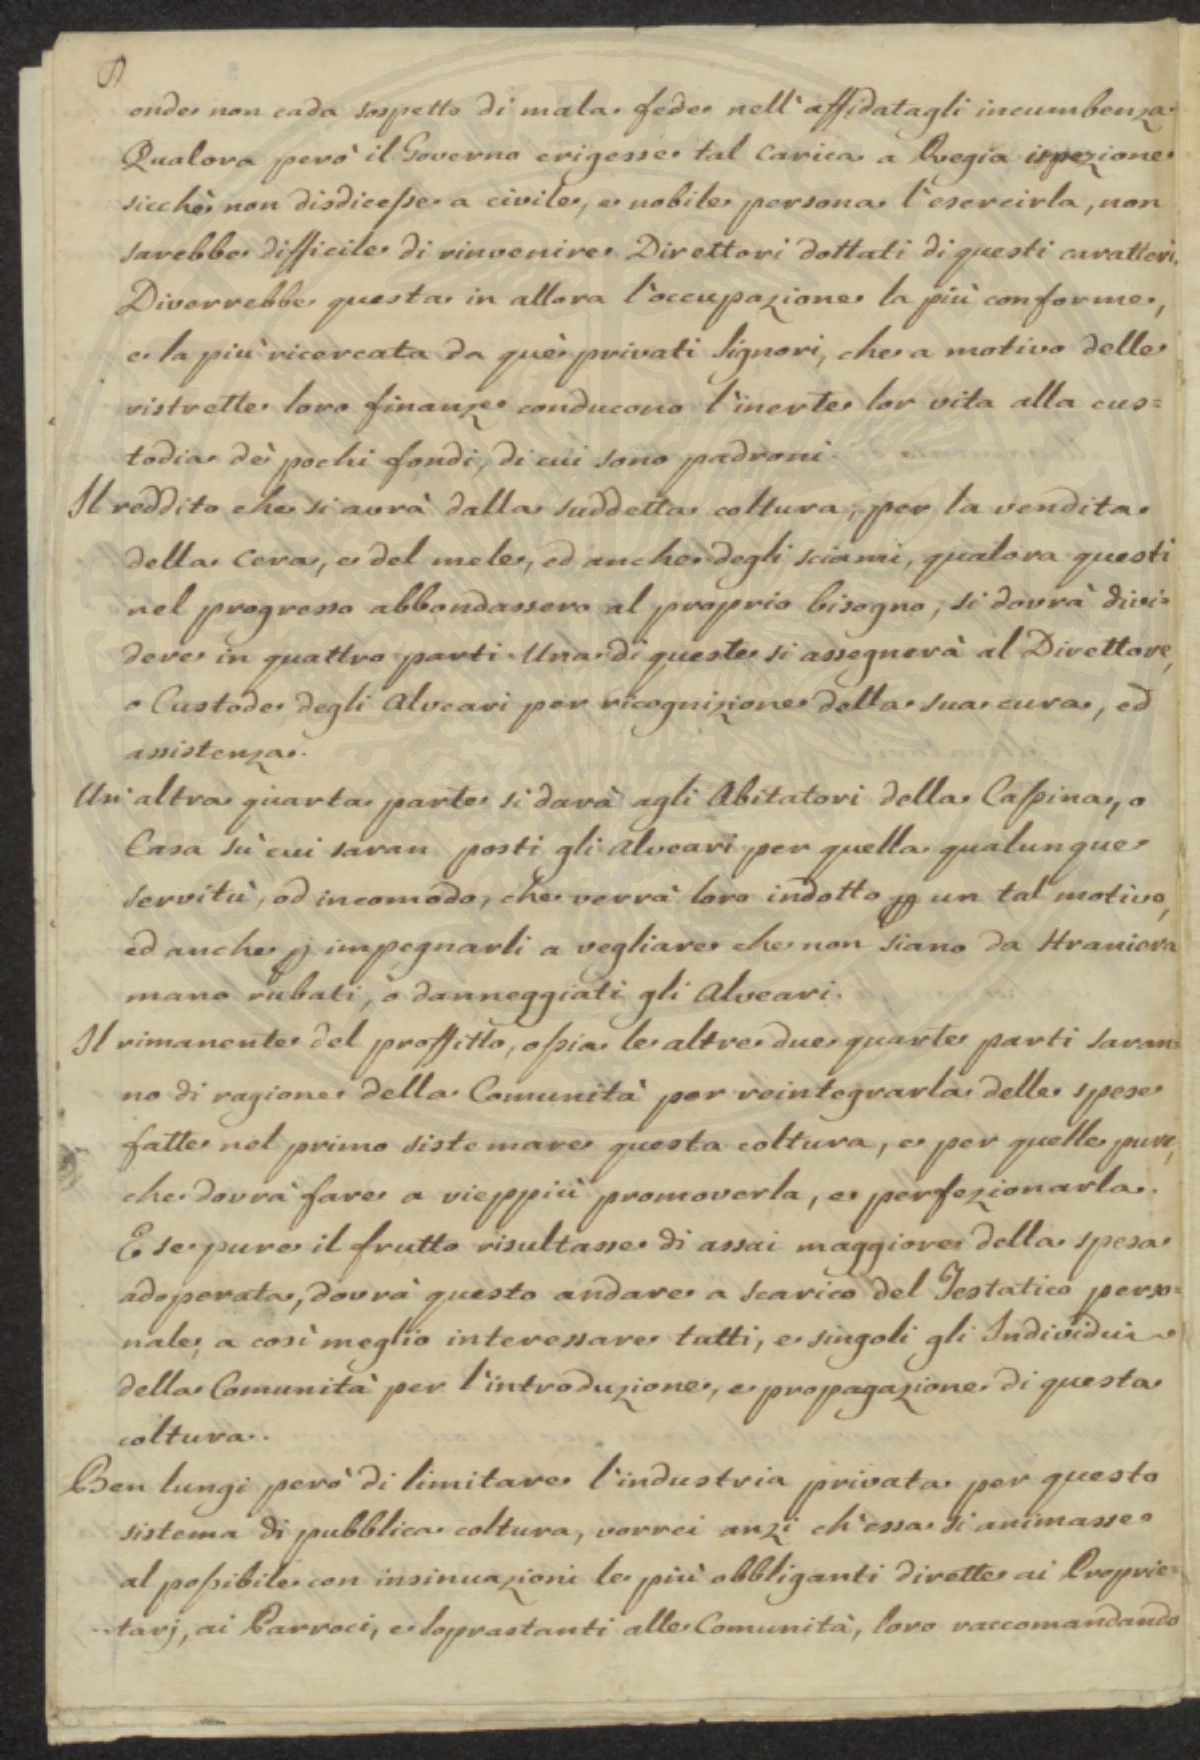 onde non cada sospetto di mala fede nell'affidatagli incumbenza
Qualora però il Governo erigesse tal carica a Regia ispezione
sicchè non disdicesse a civile, e nobile persona l'esercirla, non
sarebbe difficile di rinvenire Direttori dottati di questi caratteri.
Diverrebbe questa in allora l'occupazione la più conforme,
e la più ricercata da què privati Signori, che a motivo delle
ristrette loro finanze conducono l'inerte lor vita alla cus=
todia dè pochi fondi, di cui sono padroni.
Il reddito che si avrà dalla suddetta coltura, per la vendita
della Cera, e del mele, ed anche degli sciami, qualora questi
nel progresso abbondassero al proprio bisogno, si dovrà divi=
dere in quattro parti. Una di queste si assegnerà al Direttore,
o Custode degli Alveari per ricognizione della sua cura, ed
assistenza.
Un'altra quarta parte si darà agli Abitatori della Cassina, o
Casa sù cui saran posti gli Alveari per quella qualunque
servitù, od incomodo, che verrà loro indotto p un tal motivo,
ed anche p impegnarli a vegliare che non siano da straniera
mano rubati, ò danneggiati gli Alveari.
Il rimanente del proffitto, ossia le altre due quarte parti saran=
no di ragione della Comunità per reintegrarla delle spese
fatte nel primo sistemare questa coltura, e per quelle pure,
che dovrà fare a vieppiù promoverla, e perfezionarla.
E se pure il frutto risultasse di assai maggiore della spesa
adoperata, dovrà questo andare a scarico del Testatico perso=
nale, a così meglio interessare tutti, e singoli gli Individui
della Comunità per l'introduzione, e propagazione di questa
coltura.
Ben lungi però di limitare l'industria privata per questo
sistema di pubblica coltura, vorrei anzi ch'essa si animasse
al possibile con insinuazioni le più obbliganti dirette ai Proprie=
tarj, ai Parroci, e soprastanti alle Comunità, loro raccomandando